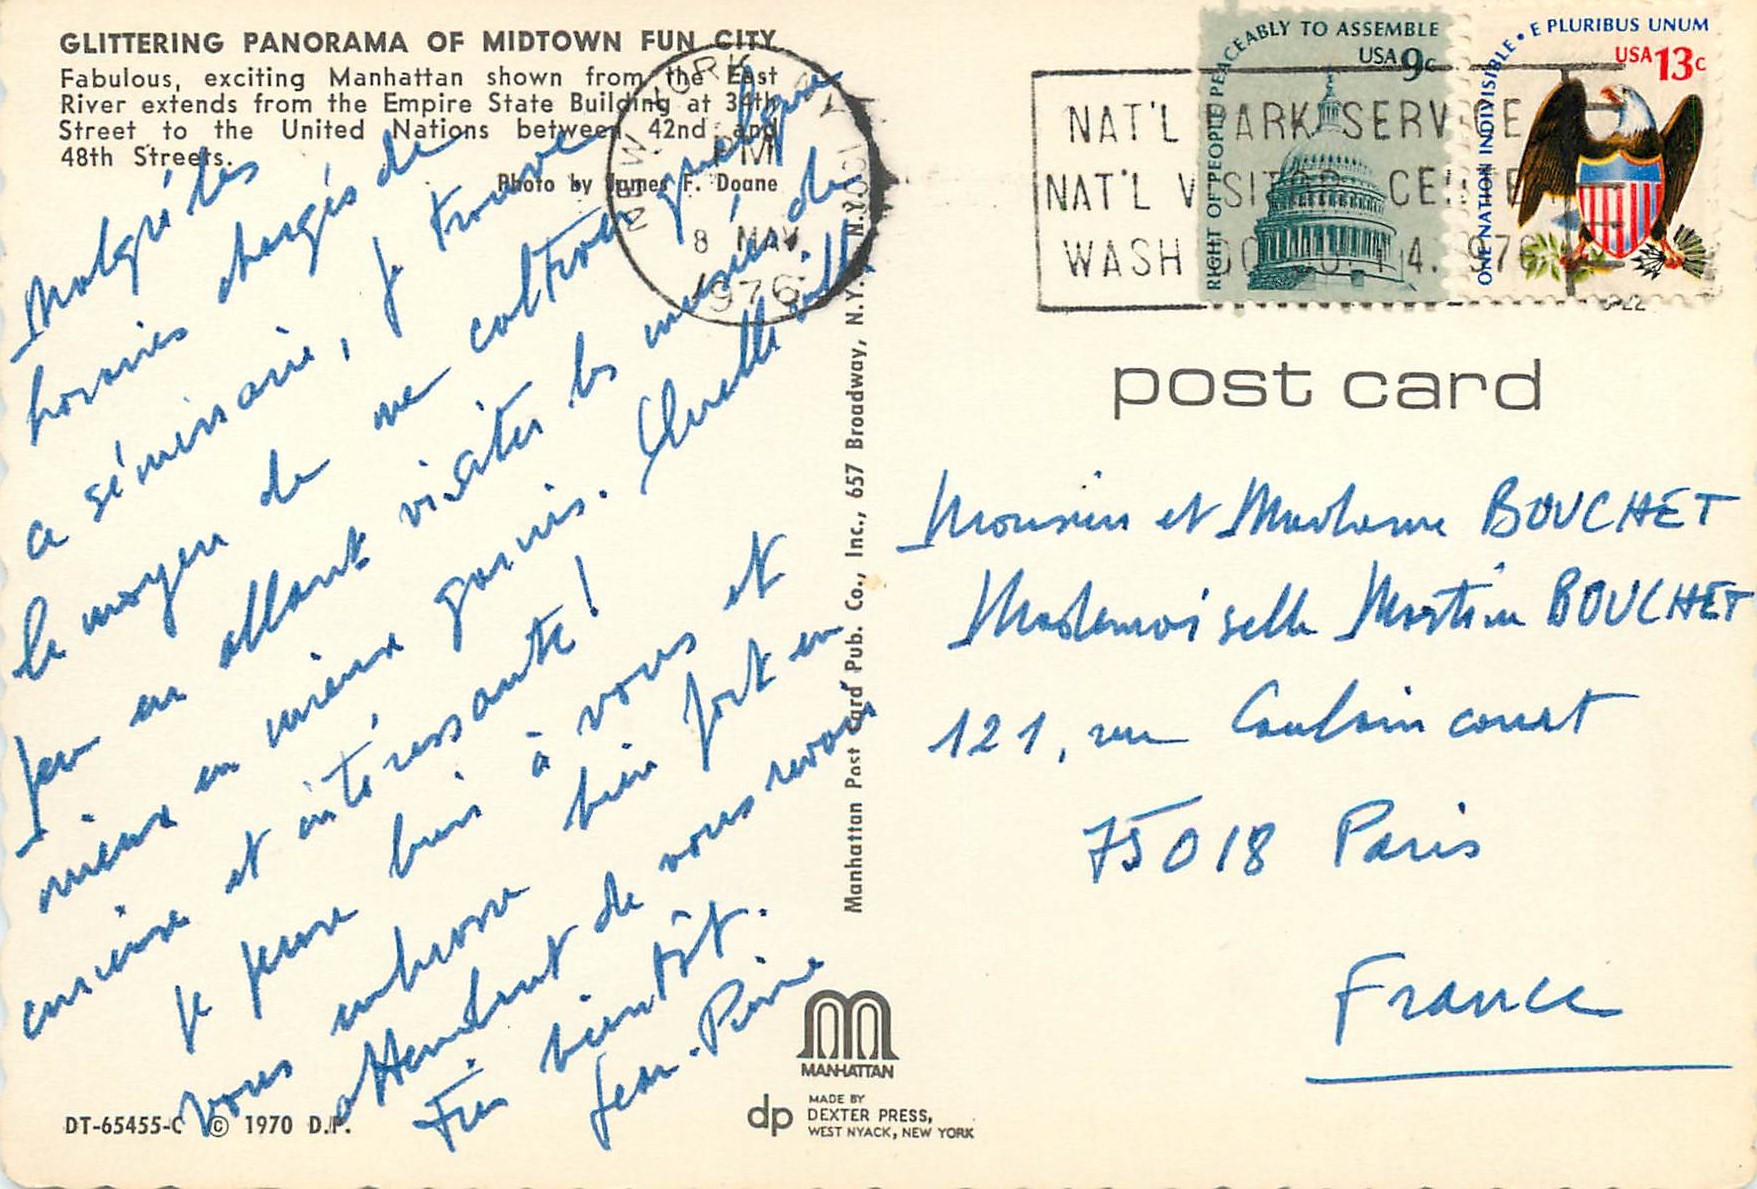 GLITTERING PANORAMA OF MIDTOWN FUN CITY
Fabulous, exciting Manhattan shown from the East
River extends from the Empire State Building at 34th
Street to the United Nations between 42nd and
48th Streets.
Photo by James F. Doane
NEW YORK, N.Y.
PM
8 MAY
1976
NAT'L PARK SERVICE
NAT'L VISITOR CENTER
WASH DC JULY 4, 1976
RIGHT OF PEOPLE PEACEABLY TO ASSEMBLE
USA 9c
ONE NATION INDIVISIBLE • E PLURIBUS UNUM
USA 13c
post card
Malgré les
horaires chargés de
ce séminaire, je trouve
le moyen de me cultiver quelque
peu en allant visiter les musées de
mieux en mieux garnis. Quelle ville
curieuse et intéressante!
Je pense bien à vous et
vous embrasse bien fort en
attendant de vous revoir
très bientôt.
Jean-Pierre
Monsieur et Madame BOUCHET
Mademoiselle Martine BOUCHET
121, rue Caulaincourt
75018 Paris
France
Manhattan Post Card Pub. Co., Inc., 657 Broadway, N.Y. N.Y.
MANHATTAN
dp
MADE BY
DEXTER PRESS,
WEST NYACK, NEW YORK
DT-65455-C © 1970 D.P.